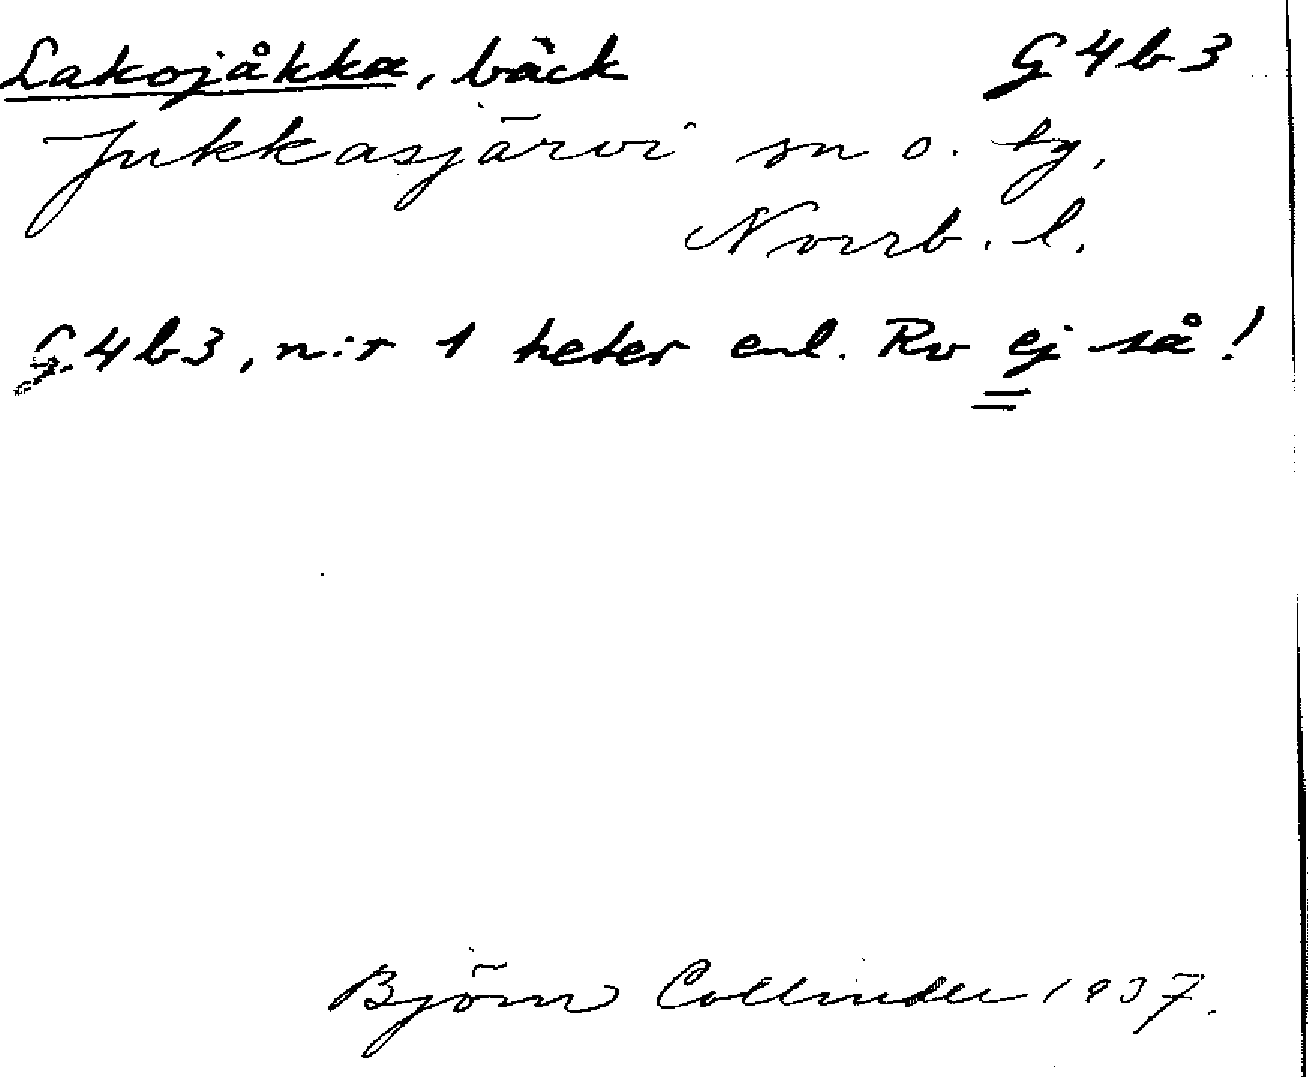 Lakojåkka, bäck G4b3
Jukkasjärvi sn o. tg,
Norrb. l.
G.4b3, n:r 1 heter enl. Rv ej så!
Björn Collinder 1937.